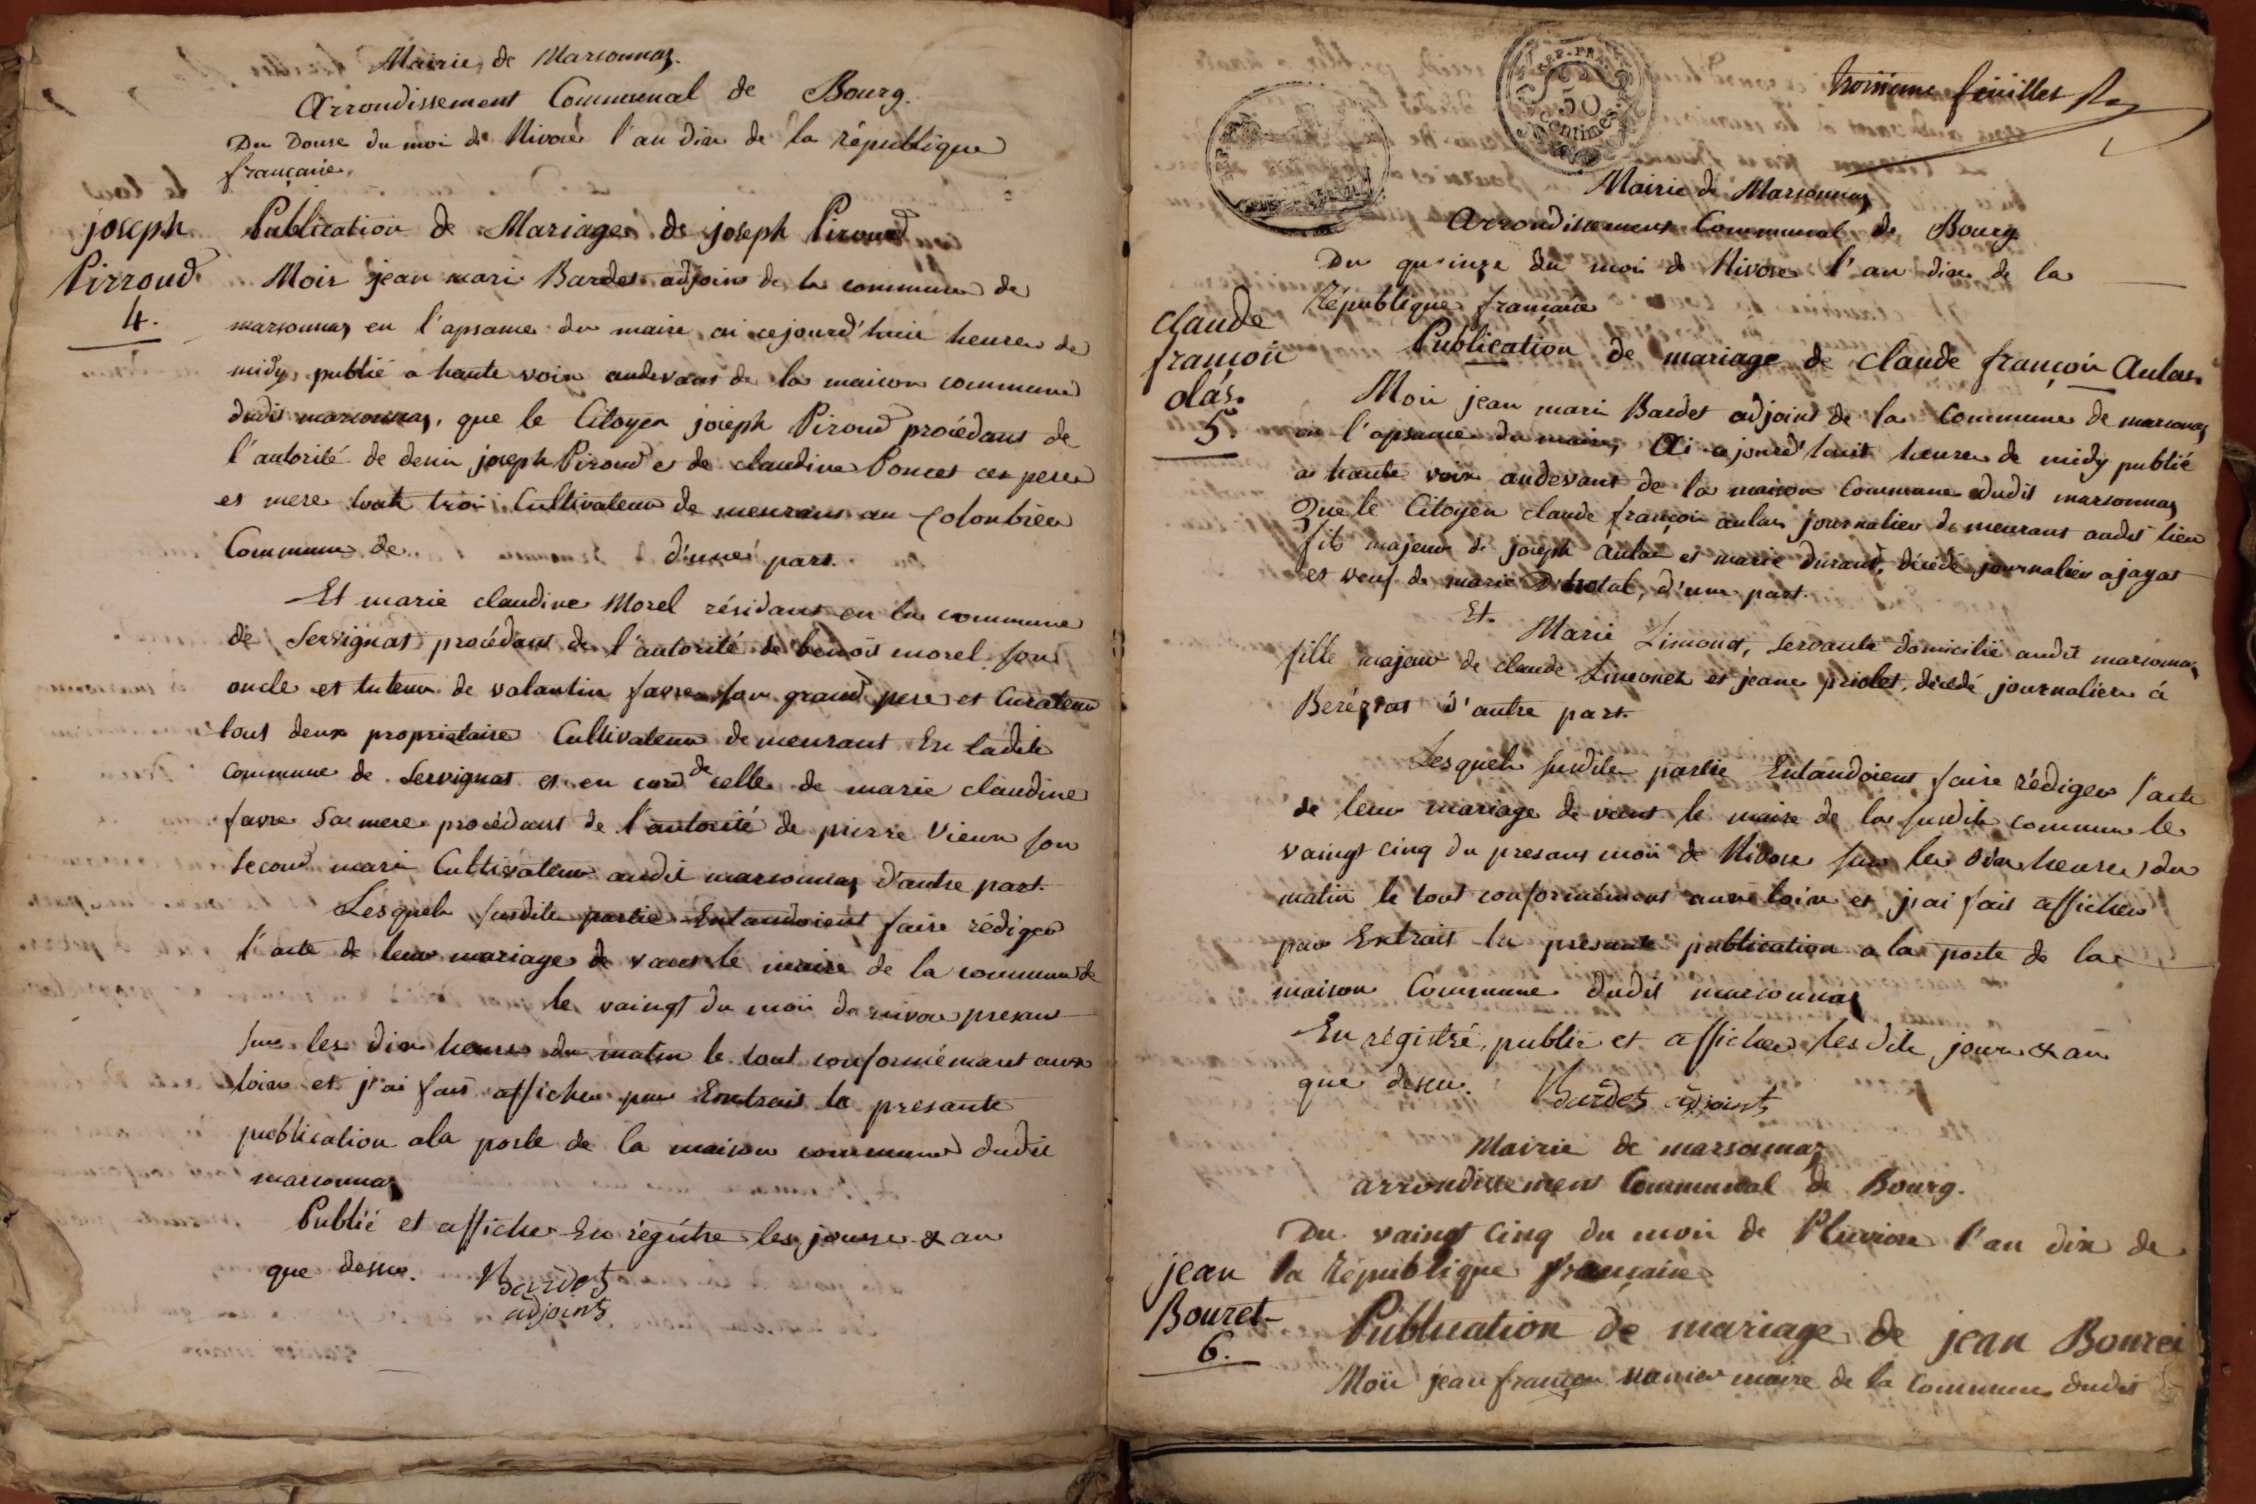 Mairie de Marsonnaz.
Arrondissement Communal de Bourg.
Du Douse du moi de Nivose l'an dix de la république
française.
joseph
Pirroud
4.
Publication de Mariage de joseph Piroud
Moii jean mari Bardet adjoin de la commune de
marsonnaz en l'apsance du maire ai cejourd'huii heure de
midy, publié a haute voix audevant de la maison commune
dudit marsonnaz, que le Citoyen joseph Piroud procédant de
l'autorité de joseph Piroud et de claudine Poncet ces pere
et mere Cultivateur demeurant au Colombier
Commune de d'une part.
Et marie claudine Morel résidant en la commune
de Servignat procédant de l'autorité de benoit morel son
oncle et tuteur de valantin favre son grand pere et Curateur
tous deux propriétaire Cultivateur demeurant En ladite
Commune de Servignat et en de celle de marie claudine
favre sa mere procédant de l'autorité de pierre Vieux son
second mari Cultivateur audit marsonnaz d'autre part.
Lesquels susdite partie Entandoient faire rédiger
l'acte de leur mariage de vant le maire de la commune de
le vaingt du moii de nivose presant
sur les dix heure du matin le tout conformémant aux
loix et j'ai fait afficher par Extrait la presante
publication ala porte de la maison commune dudit
marsonnaz
Publié et afficher En régitre les jour & an
que dessu. Bardet
adjoint
50
Centimes
troisieme feuillet
Mairie de Marsonnaz
Arrondissement Communal de Bourg
Du quinze du moi de Nivose l'an dix de la
République française
claude
françoii
olas.
5
Publication de mariage de claude françoii Aulas
Moii jean mari Bardet adjoint de la Commune de marsonnaz
en l'apsance du maire, Ai cejourd'huit heure de midy publié
a haute voix audevant de la maison Commune dudit marsonnaz
Que le Citoyen claude françoii aulas journalier demeurant audit lieu
fils majeur de joseph Aulas et marie durand, décédé journalier ajayat
et veuf de marie, d'une part.
Et
Marie Limonet, Servante domicilié audit marsonnaz
fille majeur de claude Limonet et jeane priolet, décédé journalier á
Beréziat d'autre part.
Lesquels susdite partie Entandoient faire rédiger l'acte
de leur mariage de vant le maire de la susdite commune le
vaingt cinq du presant moii de Nivose sur les dix heure du
matin le tout conformément aux loix et j'ai fait afficher
par Extrait la presante publication a la porte de la
maison Commune dudit marsonnaz
En régistré, publié et afficher lesdite jour & an
que dessu. Bardet adjoint
Mairie de marsonnaz
arrondissement Communal de Bourg.
Du vaingt cinq du moii de Pluviose l'an dix de
la République française
jean
Bouret
6.
Publication de mariage de jean Bouret
Moii jean françoii maire de la Commune dudit